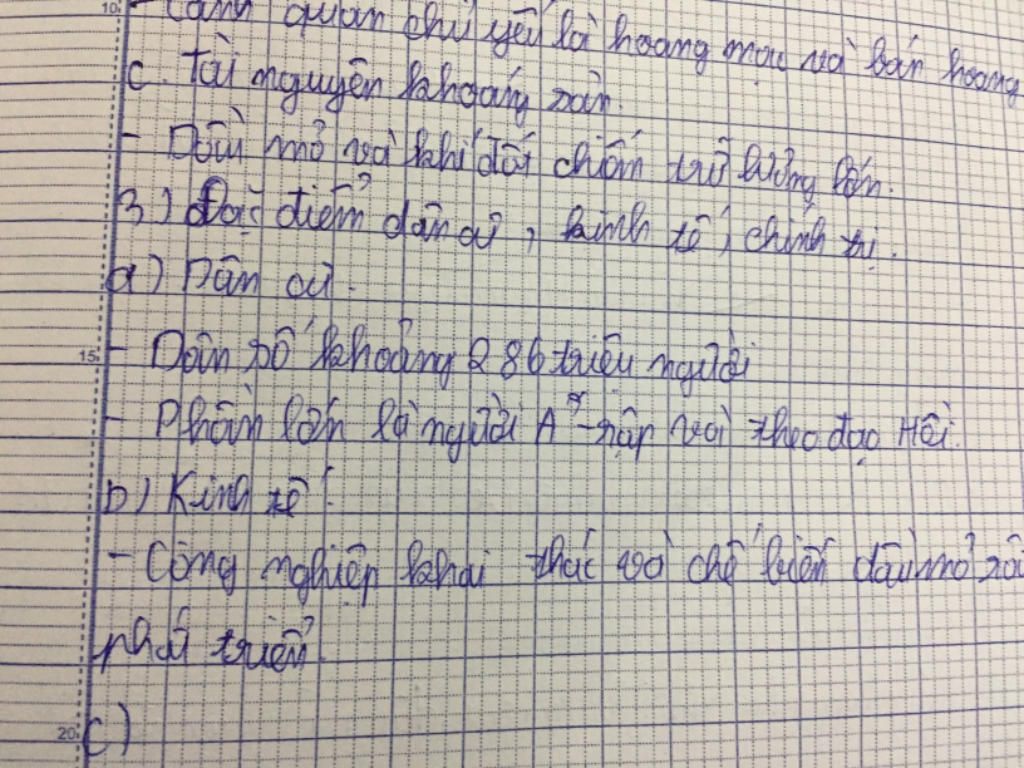 10
- Cảnh quan chủ yếu là hoang mạc và bán hoang
c. Tài nguyên khoáng sản.
- Dầu mỏ và khí đốt chiếm trữ lượng lớn.
3) Đặc điểm dân cư, kinh tế, chính trị.
a) Dân cư.
15 - Dân số khoảng 286 triệu người
- Phần lớn là người Ả-rập và theo đạo Hồi.
b) Kinh tế.
- Công nghiệp khai thác và chế biến dầu mỏ rất
phát triển.
20 c)